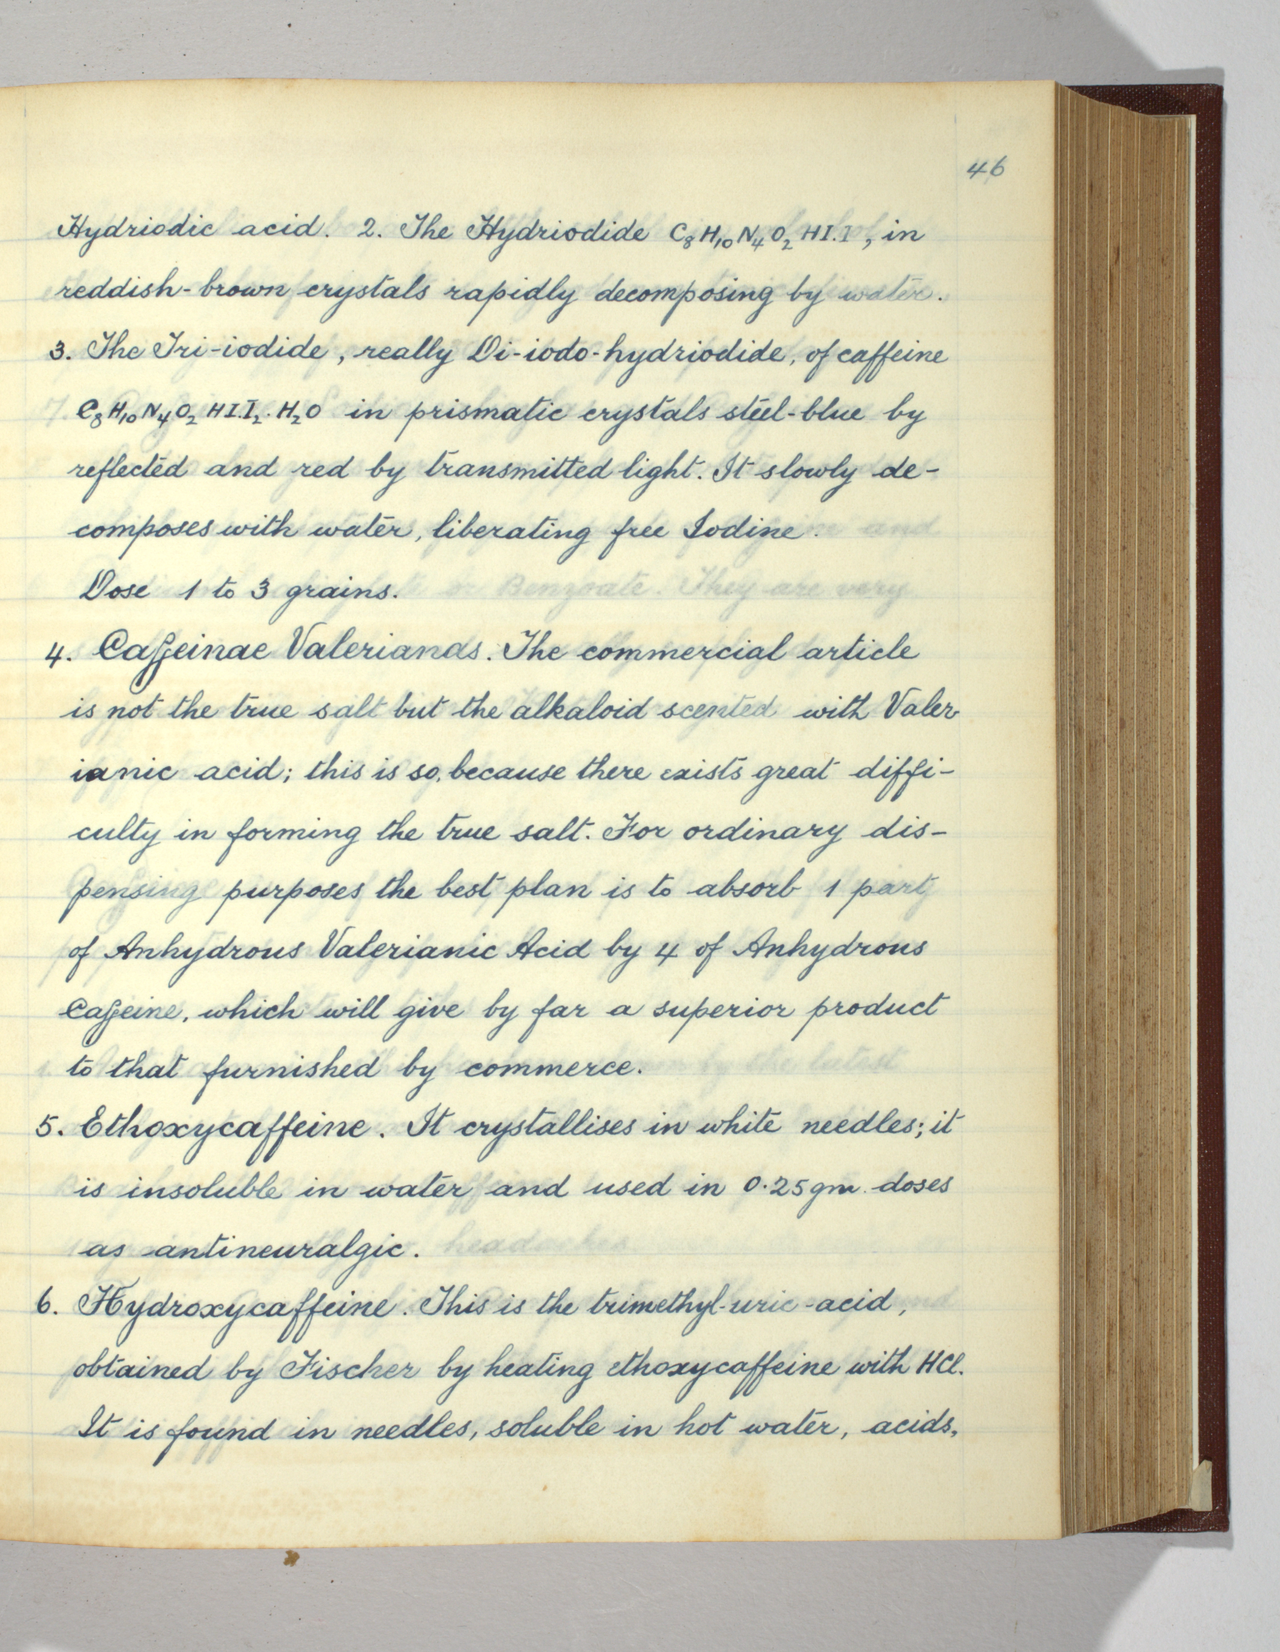 46
Hydriodic acid. 2. The Hydriodide C₈H₁₀N₄O₂HI.I, in
reddish-brown crystals rapidly decomposing by water.
3. The Tri-iodide, really Di-iodo-hydriodide, of caffeine
C₈H₁₀N₄O₂HI.I₂.H₂O in prismatic crystals steel-blue by
reflected and red by transmitted light. It slowly de-
composes with water, liberating free Iodine.
Dose 1 to 3 grains.
4. Caffeinae Valerianas. The commercial article
is not the true salt but the alkaloid scented with Valer
ianic acid; this is so, because there exists great diffi-
culty in forming the true salt. For ordinary dis-
pensing purposes the best plan is to absorb 1 part
of Anhydrous Valerianic Acid by 4 of Anhydrous
Caffeine, which will give by far a superior product
to that furnished by commerce.
5. Ethoxycaffeine. It crystallises in white needles; it
is insoluble in water and used in 0.25 gm. doses
as antineuralgic.
6. Hydroxycaffeine. This is the trimethyl-uric-acid,
obtained by Fischer by heating ethoxycaffeine with HCl.
It is found in needles, soluble in hot water, acids,